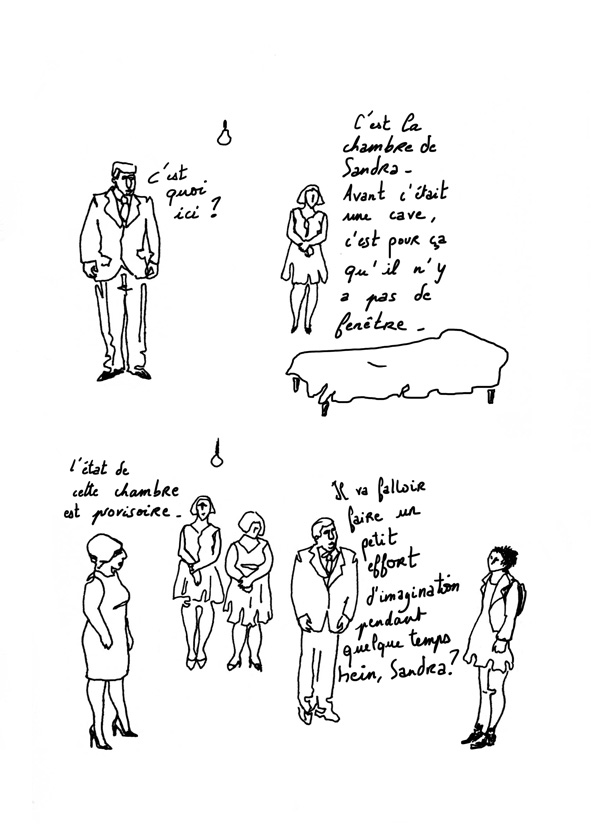 C'est
quoi
ici ?
C'est la
chambre de
Sandra -
Avant c'était
une cave,
c'est pour ça
qu'il n'y
a pas de
fenêtre -
l'état de
cette chambre
est provisoire -
Il va falloir
faire un
petit
effort
d'imagination
pendant
quelque temps
hein, Sandra ?